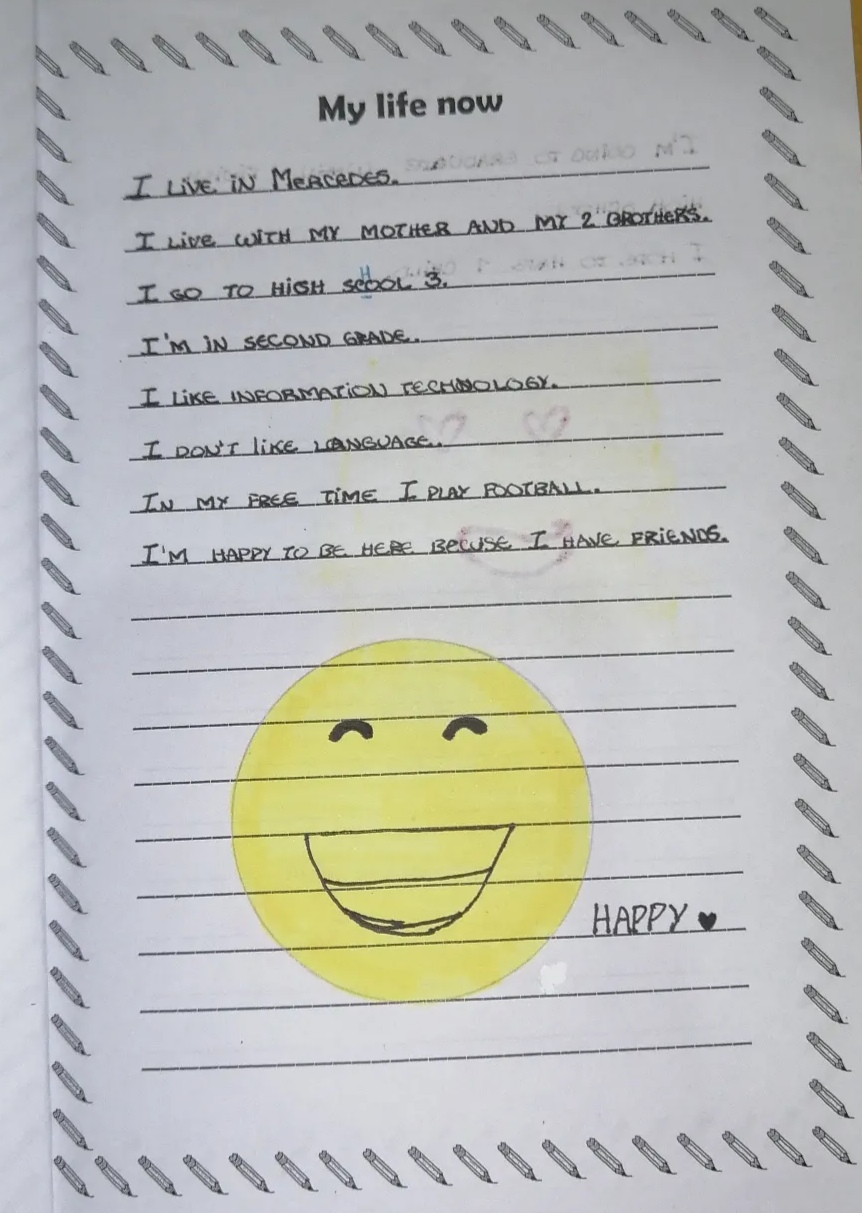 My life now
I LIVE IN MERCEDES.
I LIVE WITH MY MOTHER AND MY 2 BROTHERS.
I GO TO HIGH SCHOOL 3.
I'M IN SECOND GRADE.
I LIKE INFORMATION TECHNOLOGY.
I DON'T LIKE LANGUAGE.
IN MY FREE TIME I PLAY FOOTBALL.
I'M HAPPY TO BE HERE BECUSE I HAVE FRIENDS.
HAPPY ♥